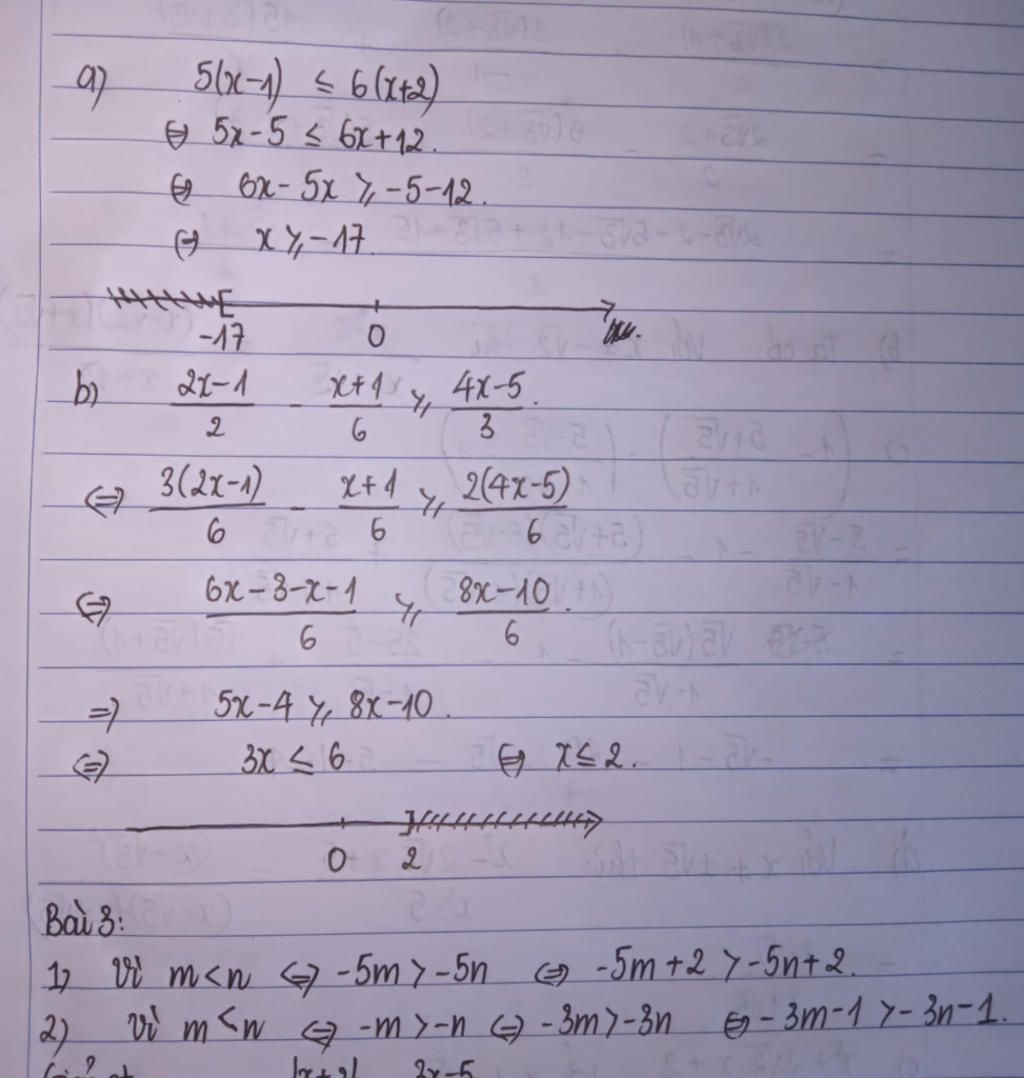 a) 5(x-1) ≤ 6(x+2)
⇔ 5x-5 ≤ 6x+12.
⇔ 6x-5x ≥ -5-12.
⇔ x ≥ -17
-17 0
b) (2x-1)/2 - (x+1)/6 ≥ (4x-5)/3.
⇔ 3(2x-1)/6 - (x+1)/6 ≥ 2(4x-5)/6
⇔ (6x-3-x-1)/6 ≥ (8x-10)/6.
⇒ 5x-4 ≥ 8x-10.
⇔ 3x ≤ 6 ⇔ x ≤ 2.
0 2
Bài 3:
1) Vì m<n ⇔ -5m > -5n ⇔ -5m+2 > -5n+2.
2) Vì m<n ⇔ -m > -n ⇔ -3m > -3n ⇔ -3m-1 > -3n-1.